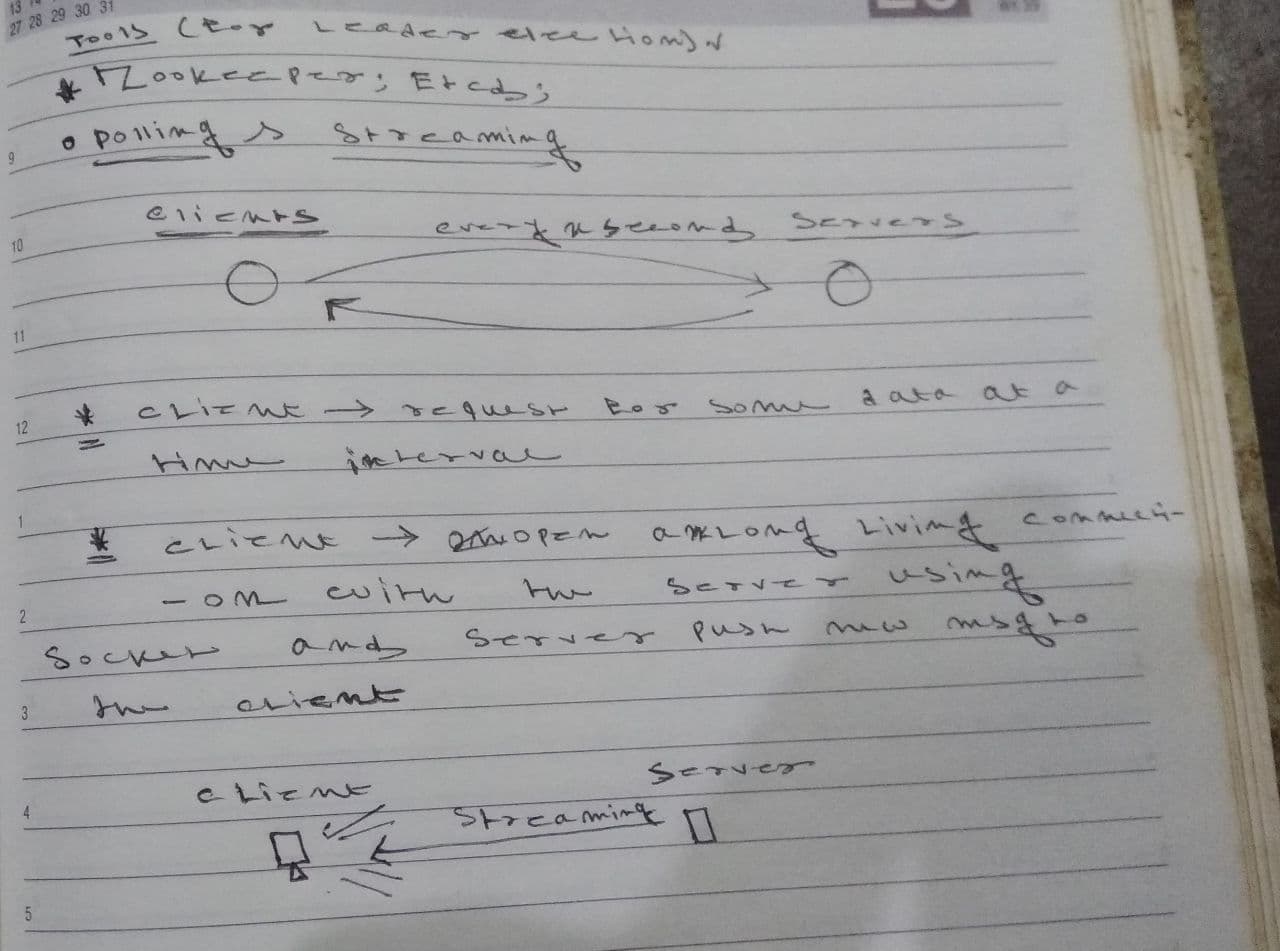 27 28 29 30 31
Tools (For Leader election)
* Zookeeper; Etcd;
• Polling & Streaming
9
clients every n second Servers
10
11
* client → request for some data at a
12
time interval
1
* client → open a long living connecti-
- on with the server using
2
Socket and Server push new msg to
the client
3
Server
client
4
Streaming
5